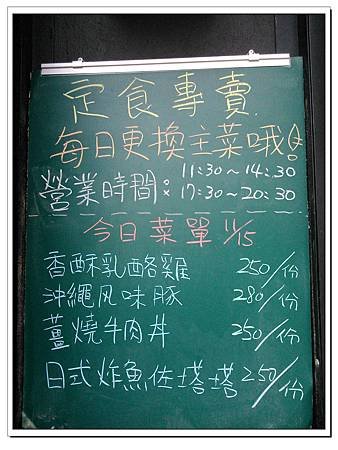 定食專賣.
每日更換主菜哦!
營業時間: 11:30~14:30
17:30~20:30
今日菜單 11/15
香酥乳酪雞 250/份
沖繩风味豚 280/份
薑燒牛肉丼 250/份
日式炸魚佐塔塔 250/份